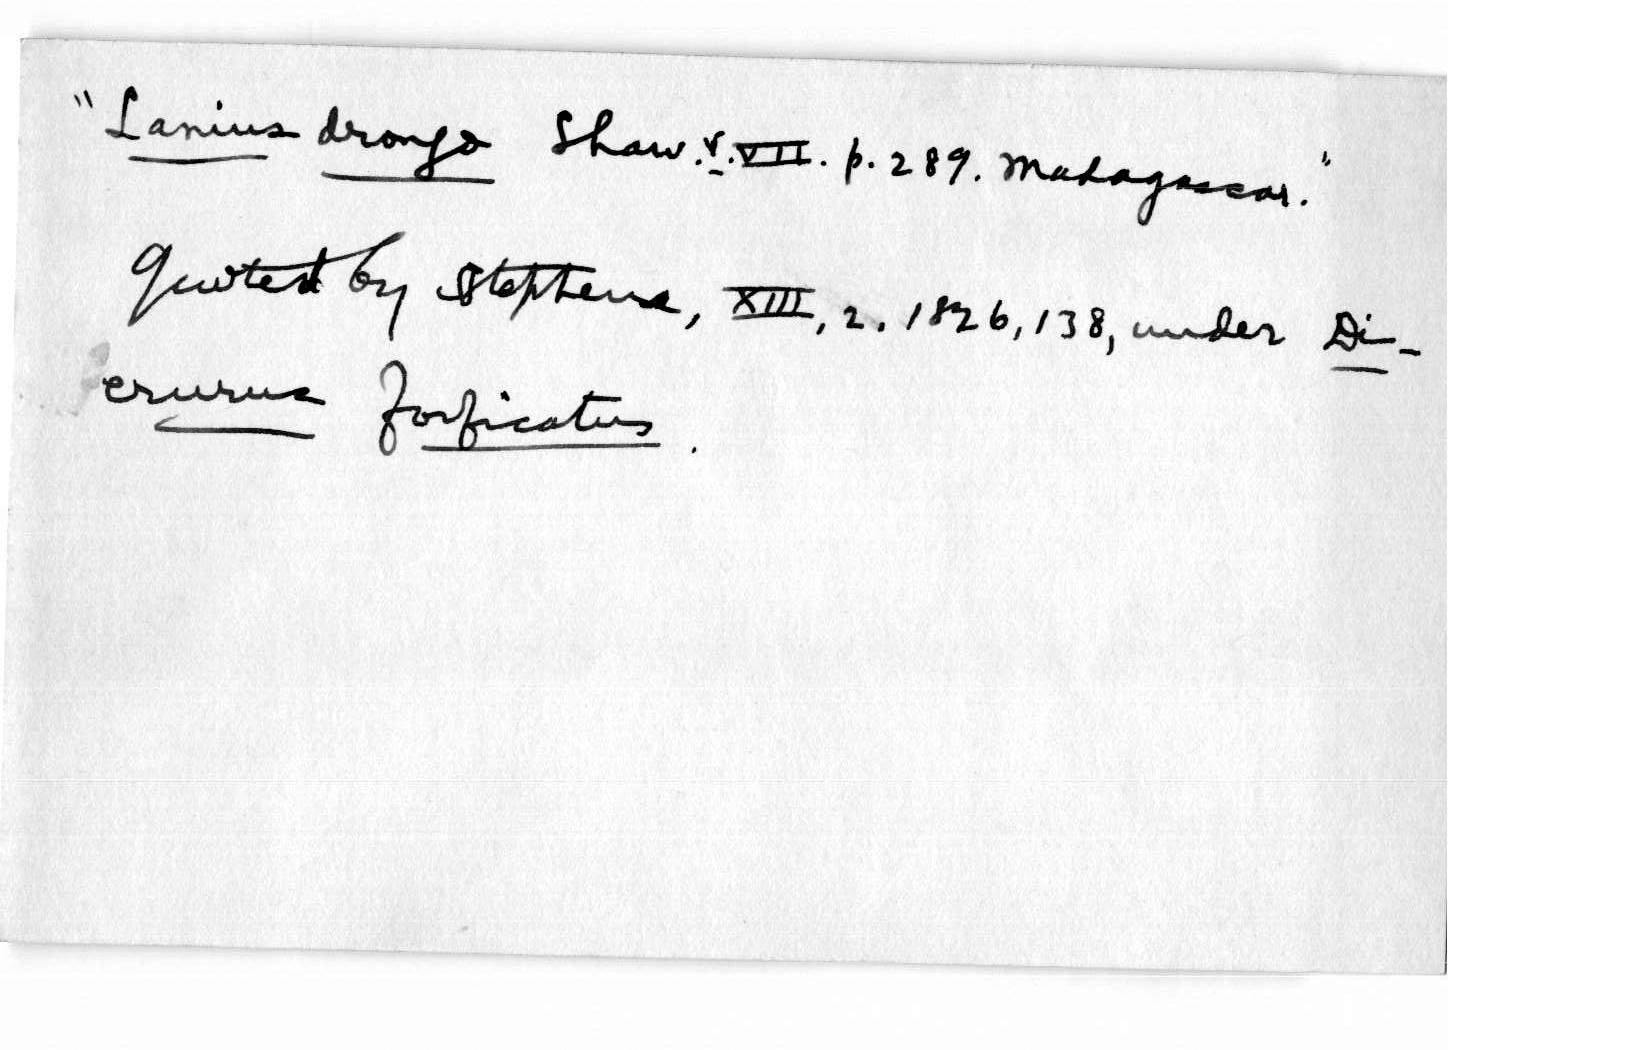 "Lanius drongo Shaw. v. VII. p. 289. Madagascar."
Quoted by Stephens, XIII, 2. 1826, 138, under Di-
crurus forficatus.